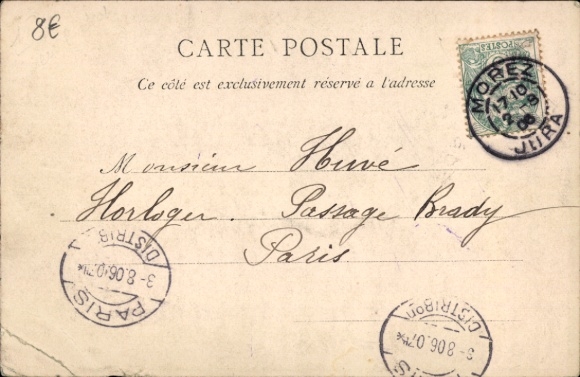 8€
CARTE POSTALE
Ce côté est exclusivement réservé a l'adresse
POSTES
MOREZ
17 10
2 8
06
JURA
Monsieur Huvé
Horloger. Passage Brady
Paris
DISTRIB
3-8.06.07
PARIS
DISTRIBon
3-8.06.07
IS